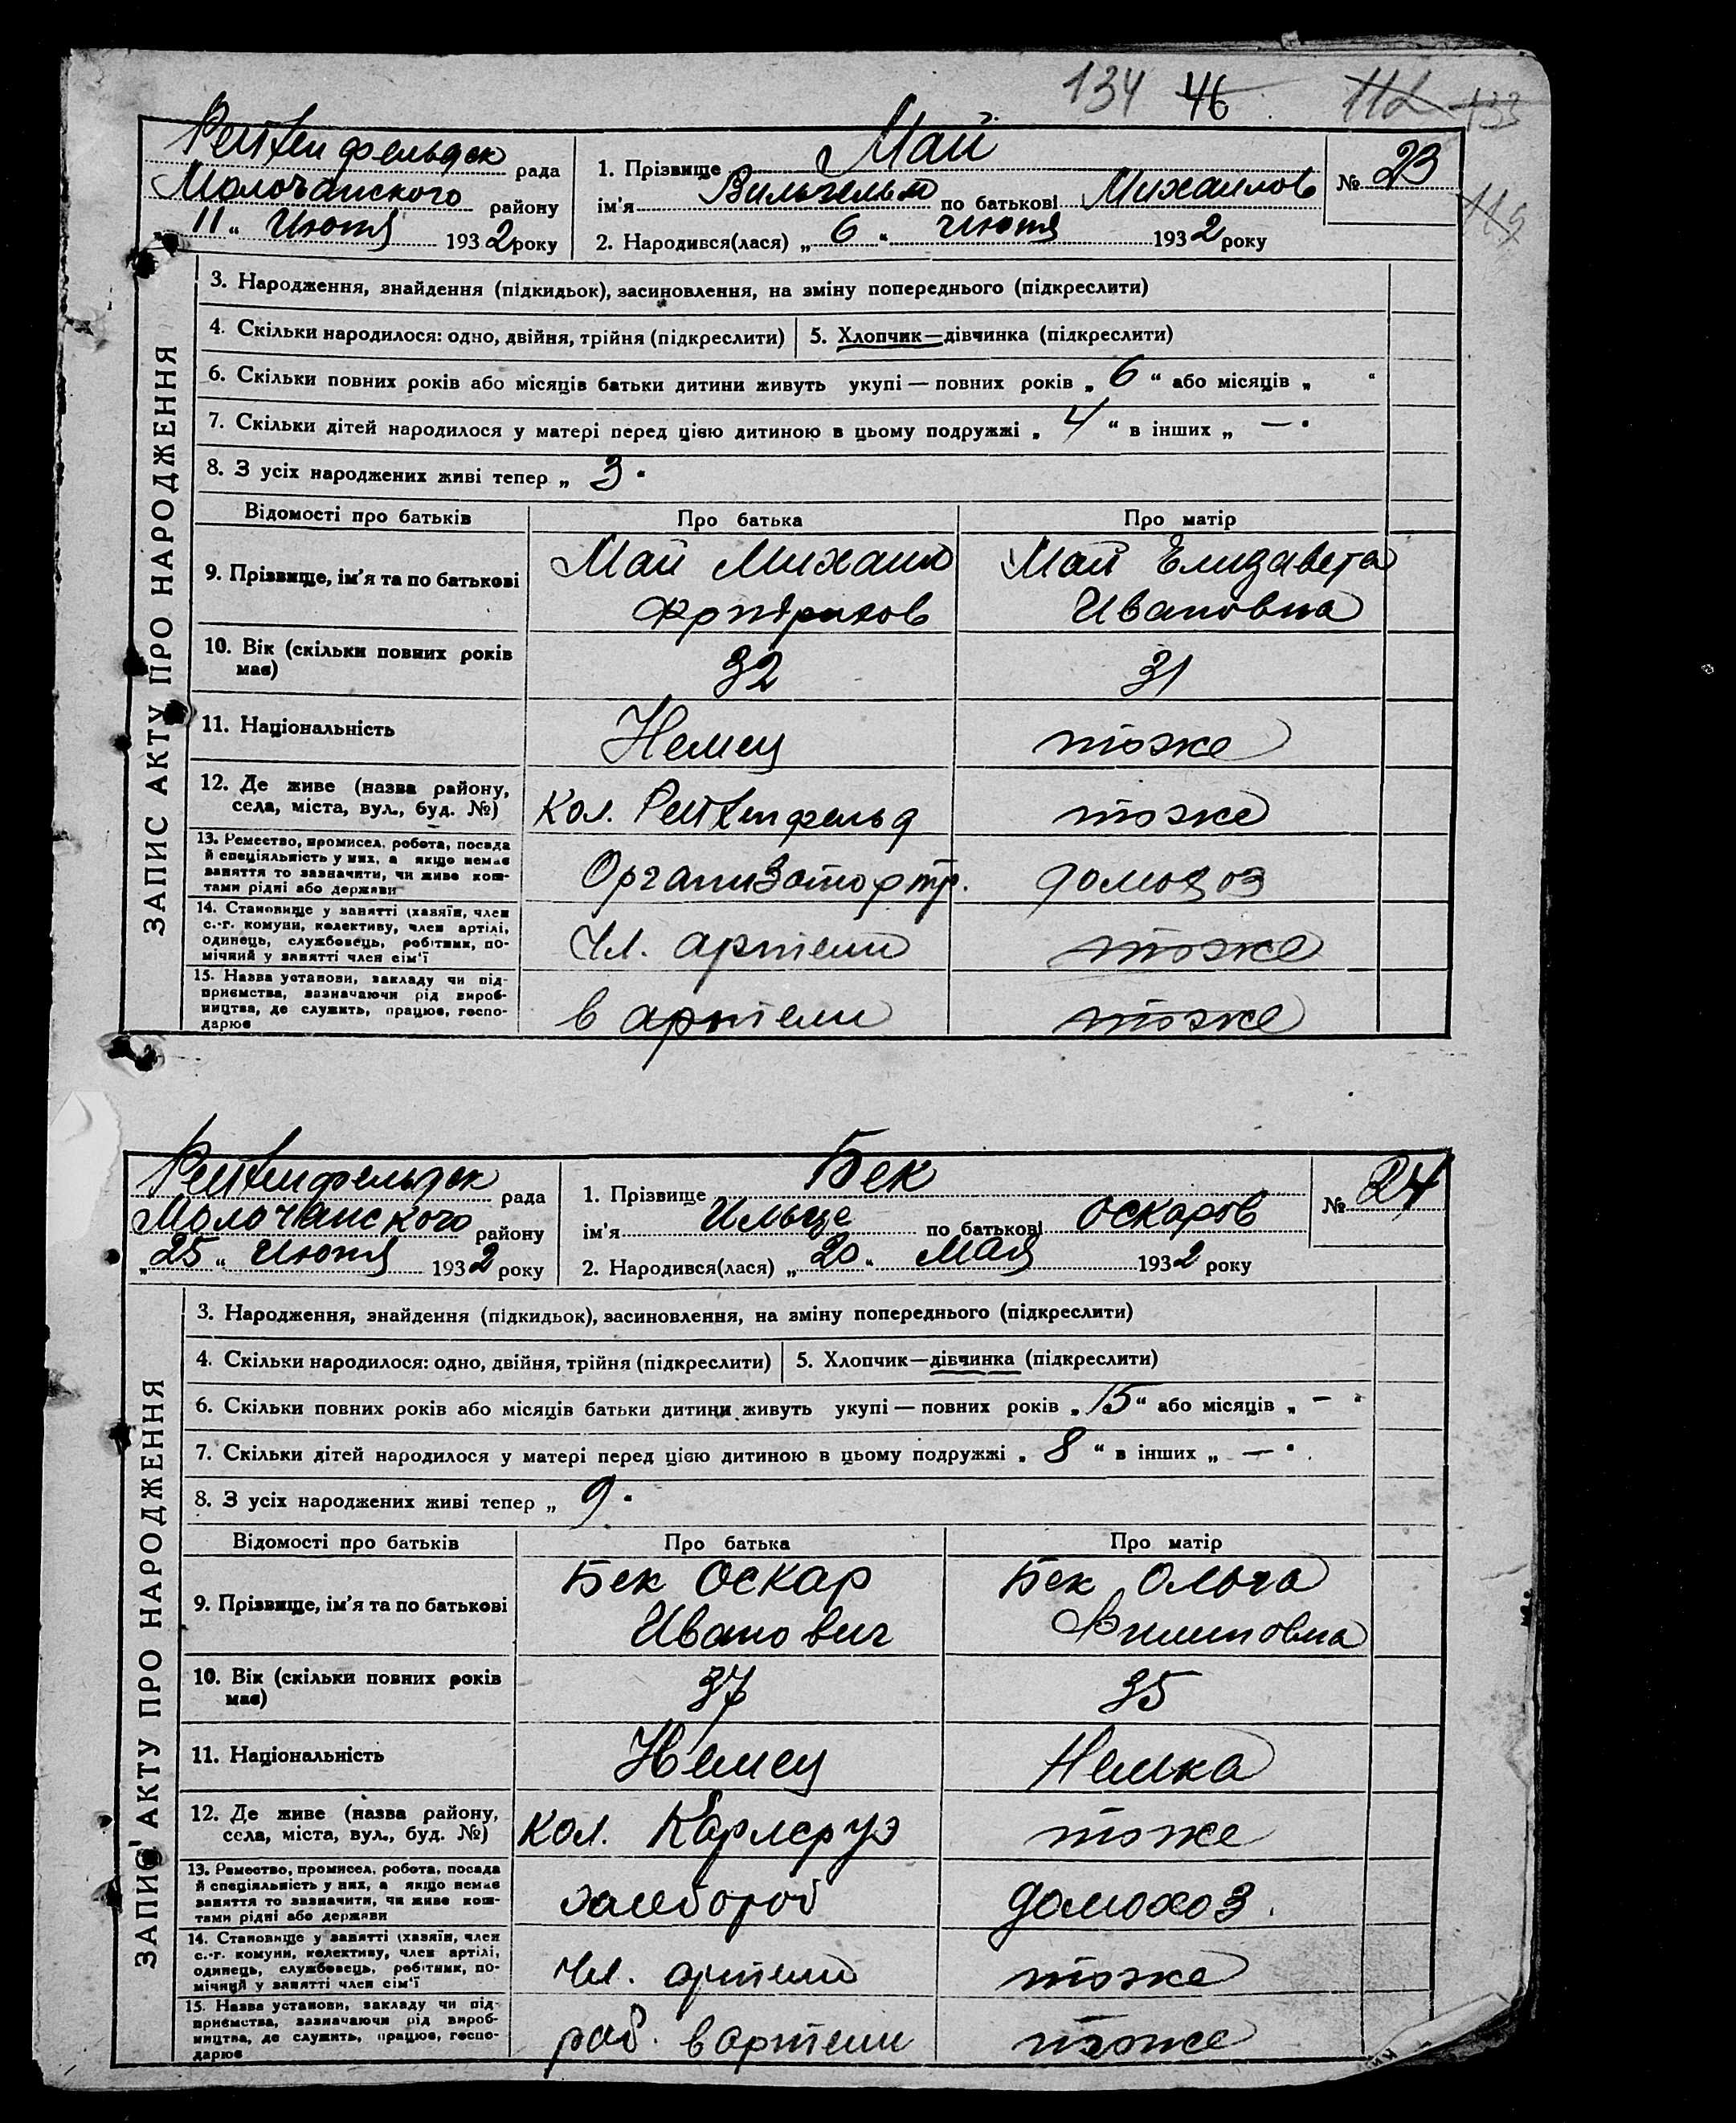 134 46 112 133
115
Рейхенфельдск рада
Молочанского району
11 „ Июня 1932 року
1. Прізвище Май
ім'я Вильгельм по батькові Михаилов
2. Народився(лася) „ 6 “ Июня 1932 року
№ 23
ЗАПИС АКТУ ПРО НАРОДЖЕННЯ
3. Народження, знайдення (підкидьок), засиновлення, на зміну попереднього (підкреслити)
4. Скільки народилося: одно, двійня, трійня (підкреслити) 5. Хлопчик—дівчинка (підкреслити)
6. Скільки повних років або місяців батьки дитини живуть укупі — повних років „ 6 “ або місяців „ “
7. Скільки дітей народилося у матері перед цією дитиною в цьому подружжі „ 4 “ в інших „ — “
8. З усіх народжених живі тепер „ 3 “
Відомості про батьків Про батька Про матір
9. Прізвище, ім'я та по батькові
Май Михаил
Май Елизавета
Ивановна
10. Вік (скільки повних років
має)
32 31
11. Національність Немец тоже
12. Де живе (назва району,
села, міста, вул., буд. №)
Кол. Рейхенфельд тоже
13. Ремество, промисел, робота, посада
й спеціяльність у них, а якщо немає
заняття то зазначити, чи живе кош-
тами рідні або держави
Организатор тр. домохоз
14. Становище у занятті (хазяїн, член
с.-г. комуни, колективу, член артілі,
одинець, службовець, робітник, по-
мічний у занятті член сім'ї
Чл. артели тоже
15. Назва установи, закладу чи під-
приємства, зазначаючи рід вироб-
ництва, де служить, працює, госпо-
дарює
в артели тоже
Рейхенфельдск рада
Молочанского району
„ 25 “ Июня 1932 року
1. Прізвище Бек
ім'я Ильзе по батькові Оскаров
2. Народився(лася) „ 20 “ Мая 1932 року
№ 24
ЗАПИС АКТУ ПРО НАРОДЖЕННЯ
3. Народження, знайдення (підкидьок), засиновлення, на зміну попереднього (підкреслити)
4. Скільки народилося: одно, двійня, трійня (підкреслити) 5. Хлопчик—дівчинка (підкреслити)
6. Скільки повних років або місяців батьки дитини живуть укупі — повних років „ 15 “ або місяців „ — “
7. Скільки дітей народилося у матері перед цією дитиною в цьому подружжі „ 8 “ в інших „ — “
8. З усіх народжених живі тепер „ 9 “
Відомості про батьків Про батька Про матір
9. Прізвище, ім'я та по батькові
Бек Оскар
Иванович
Бек Ольга
Филиповна
10. Вік (скільки повних років
має)
37 35
11. Національність Немец Немка
12. Де живе (назва району,
села, міста, вул., буд. №)
Кол. Карлсруэ тоже
13. Ремество, промисел, робота, посада
й спеціяльність у них, а якщо немає
заняття то зазначити, чи живе кош-
тами рідні або держави
хлебороб домохоз.
14. Становище у занятті (хазяїн, член
с.-г. комуни, колективу, член артілі,
одинець, службовець, робітник, по-
мічний у занятті член сім'ї
Чл. артели тоже
15. Назва установи, закладу чи під-
приємства, зазначаючи рід вироб-
ництва, де служить, працює, госпо-
дарює
раб. в артели тоже